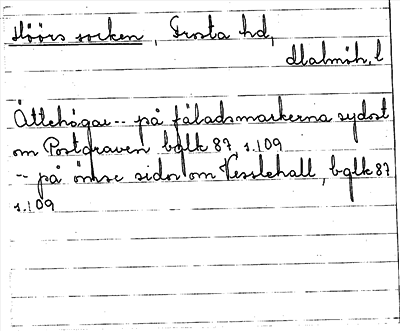 Höörs socken, Frosta hd,
Malmöh. l
Ättehögar -- på fäladsmarkerna sydost
om Postgraven bglk 87, s. 109
-- på ömse sidor om Vesslehall, bglk 87
s. 109